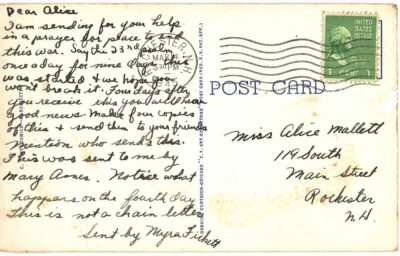 Dear Alice
I am sending for your help
in a prayer for peace to end
this war. Say the 23rd psalm
once a day for nine days. This
was started & we hope you
won't break it. Four days after
you receive this you will hear
good news. Make four copies
of this & send them to your friends
Mention who sends this.
This was sent to me by
Mary Aones. Notice what
happens on the fourth day
This is not a chain letter
Sent by Myra
UNITED STATES
POSTAGE
1 CENT 1
POST CARD
Miss Alice Mallett
119 South
Main Street
Rochester
N.H.